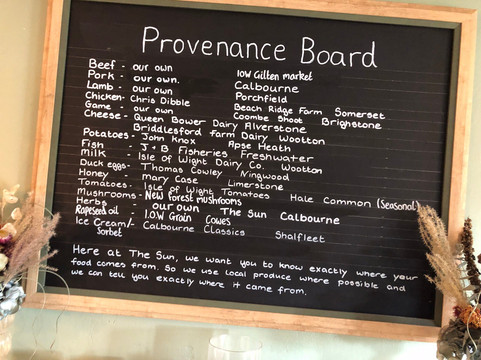 Provenance Board
Beef - our own IOW Gilten market
Pork - our own. Calbourne
Lamb - our own Porchfield
Chicken - Chris Dibble Beach Ridge Farm Somerset
Game - our own Coombe Shoot Brighstone
Cheese - Queen Bower Dairy Alverstone
Briddlesford Farm Dairy Wootton
Potatoes - John Knox Apse Heath
Fish - J + B Fisheries Freshwater
Milk - Isle of Wight Dairy Co. Wootton
Duck eggs - Thomas Cowley Ningwood
Honey - Mary Case Limerstone
Tomatoes - Isle of Wight Tomatoes Hale Common (Seasonal)
Mushrooms - New forest mushrooms
Herbs - our own The Sun Calbourne
Rapeseed oil - I.O.W Grain Cowes
Ice Cream/- Calbourne Classics Shalfleet
Sorbet
Here at The Sun, we want you to know exactly where your
food comes from. So we use local produce where possible and
we can tell you exactly where it came from.